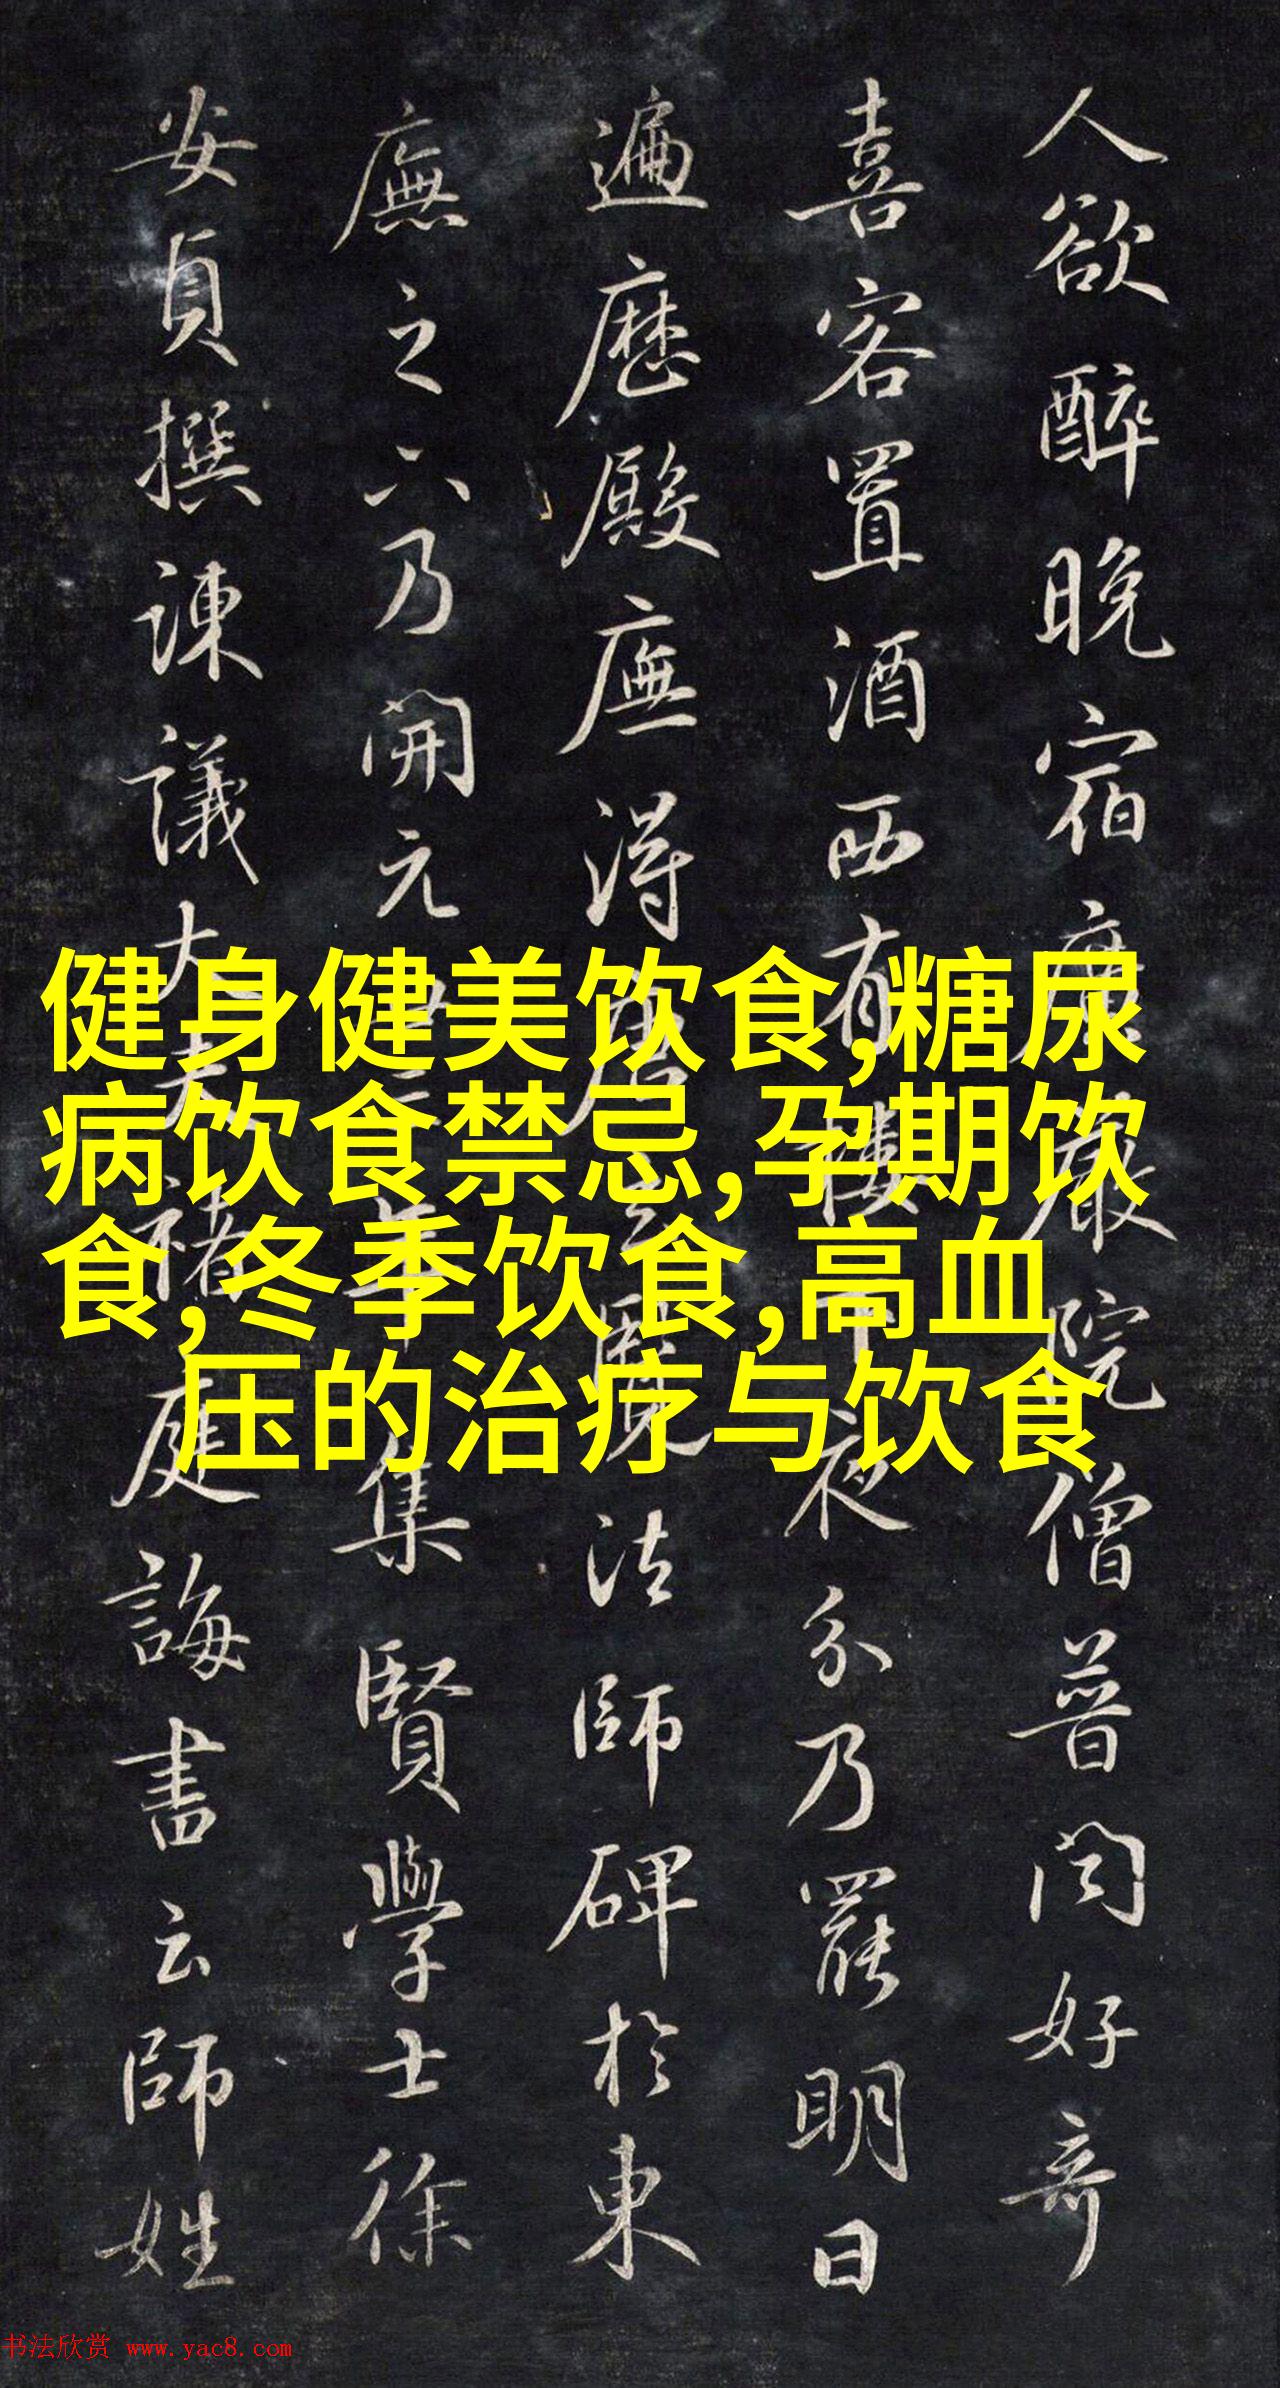 人欲醉晚宿广严院僧普闻好奇
喜客置酒西有楼下夜分乃罷明日
遍歴殿廡得唐玄覽法師碑於東
廡之六乃開元廿三年集賢學士徐
安貞撰諫議大夫褚庭誨書云師姓
健身健美饮食,糖尿
病饮食禁忌,孕期饮
食,冬季饮食,高血
压的治疗与饮食
书法欣赏 www.yac8.com